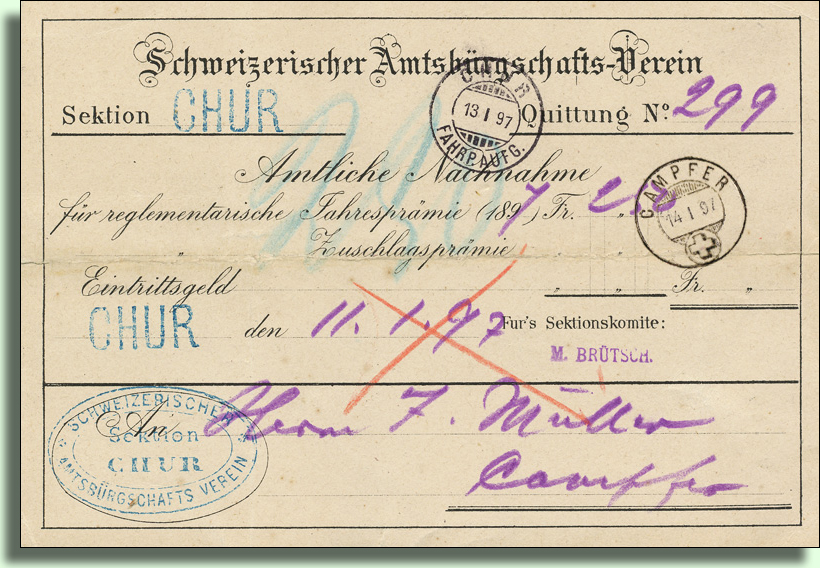 Schweizerischer Amtsbürgschafts-Verein
Sektion CHUR Quittung No. 299
CHUR
13 I 97
FAHRP. AUFG.
Amtliche Nachnahme
CAMPFER
14 I 97
für reglementarische Jahresprämie (1897) Fr. "
" Zuschlagsprämie " "
Eintrittsgeld " " Fr. "
CHUR den 11. 1. 97 Für's Sektionskomite:
M. BRÜTSCH.
An Herrn F. Müller
Campfer
SCHWEIZERISCHER
Sektion
CHUR
AMTSBÜRGSCHAFTS VEREIN